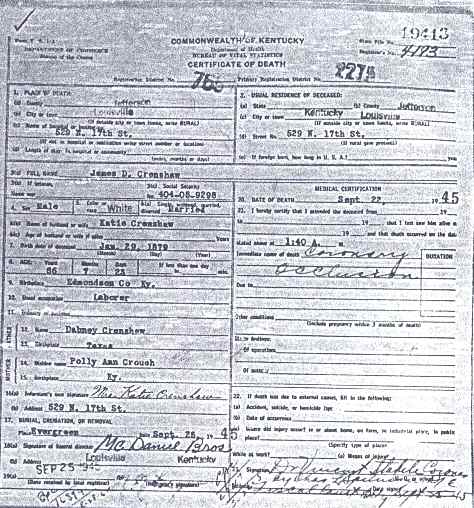 19413
COMMONWEALTH OF KENTUCKY
Department of Health
DEPARTMENT OF COMMERCE
BUREAU OF VITAL STATISTICS
State File No.
Bureau of the Census
CERTIFICATE OF DEATH
Registrar's No. 4183
Registration District No. 755 Primary Registration District No. 2275
1. PLACE OF DEATH:
(a) County Jefferson
(b) City or town Louisville
(If outside city or town limits, write RURAL)
(c) Name of hospital or institution
529 N. 17th St.
(If not in hospital or institution write street number or location)
(d) Length of stay: In hospital or community
(years, months or days)
2. USUAL RESIDENCE OF DECEASED:
(a) State Kentucky (b) County Jefferson
(c) City or town Louisville
(If outside city or town limits, write RURAL)
(d) Street No. 529 N. 17th St.
(If rural give precinct)
(e) If foreign born, how long in U. S. A.? years
3(a) FULL NAME James D. Crenshaw
3(b) If veteran, 3(c) Social Security
name war No. 404-05-9298
Male White Married
Name of husband or wife Katie Crenshaw
Age of husband or wife if alive Years
7. Birth date of deceased Jan. 29, 1879
(Month) (Day) (Year)
8. AGE: Years Months Days If less than one day
66 7 23
9. Birthplace Edmondson Co Ky.
10. Usual occupation Laborer
11. Industry or business
12. Name Dabney Crenshaw
13. Birthplace Texas
14. Maiden name Polly Ann Crouch
15. Birthplace Ky.
16(a) Informant's own signature Mrs. Katie Crenshaw
(b) Address 529 N. 17th St.
17. BURIAL, CREMATION, OR REMOVAL
Evergreen Date Sept. 25, 1945
18(a) Signature of funeral director McDaniel Bros
(b) Address Louisville Kentucky
19(a) SEP 25 1945
(Date received by local registrar) (Registrar's signature)
MEDICAL CERTIFICATION
20. DATE OF DEATH Sept. 22, 1945
21. I hereby certify that I attended the deceased from 19
19 that I last saw him alive
19 and that death occurred on the date
stated above at 1:40 A. m.
Immediate cause of death Coronary DURATION
Occlusion
Due to
Other conditions
(Include pregnancy within 3 months of death)
Major findings:
Of operations
Of autopsy
22. If death was due to external causes, fill in the following:
(a) Accident, suicide, or homicide (specify)
(b) Date of occurrence
(c) Where did injury occur? in or about home, on farm, in industrial place, in public
place?
(Specify type of place)
While at work? (e) Means of injury
Signature